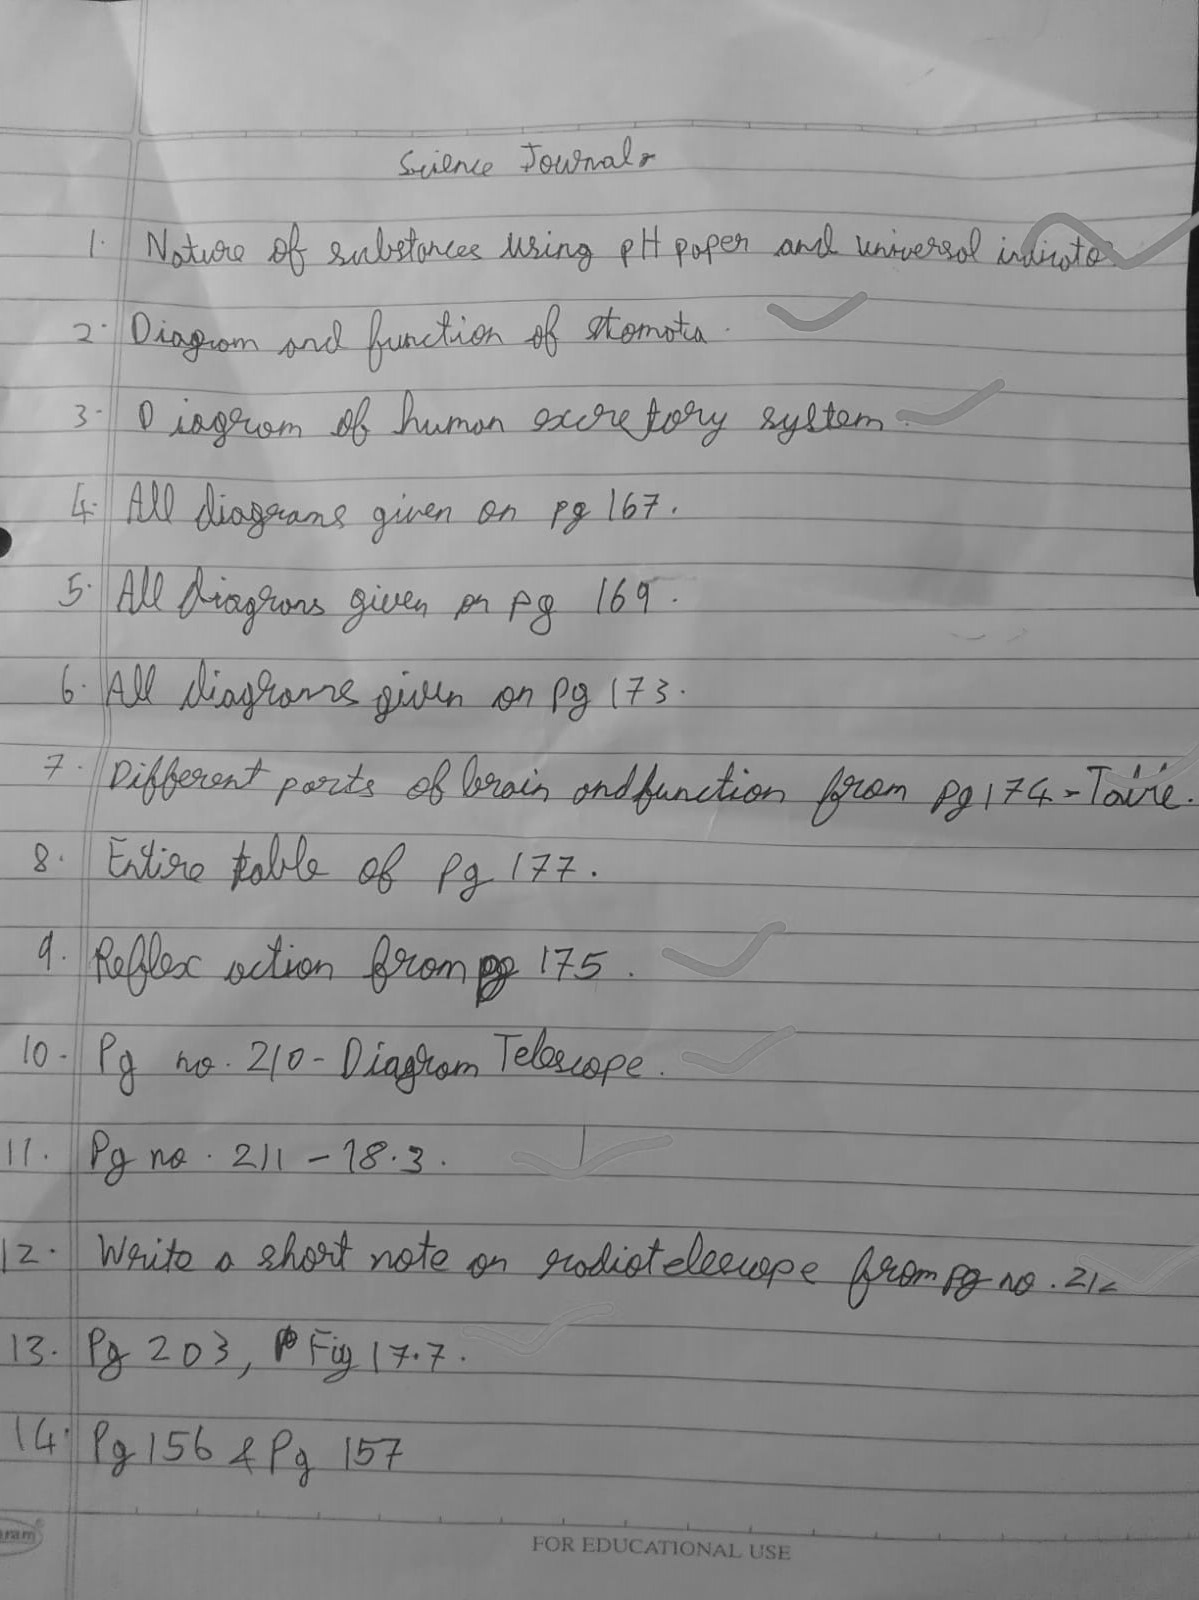 Science Journal
1. Nature of substances using pH paper and universal indicato
2. Diagram and function of stomata.
3. Diagram of human excretory system.
4. All diagrams given on pg 167.
5. All diagrams given on pg 169.
6. All diagrams given on pg 173.
7. Different parts of brain and function from pg 174 -
8. Entire table of pg 177.
9. Reflex action from pg 175.
10. Pg no. 210 - Diagram Telescope.
11. Pg no. 211 - 18.3.
12. Write a short note on radiotelescope from pg no. 212
13. Pg 203, Fig 17.7.
14. Pg 156 & Pg 157
ram®
FOR EDUCATIONAL USE